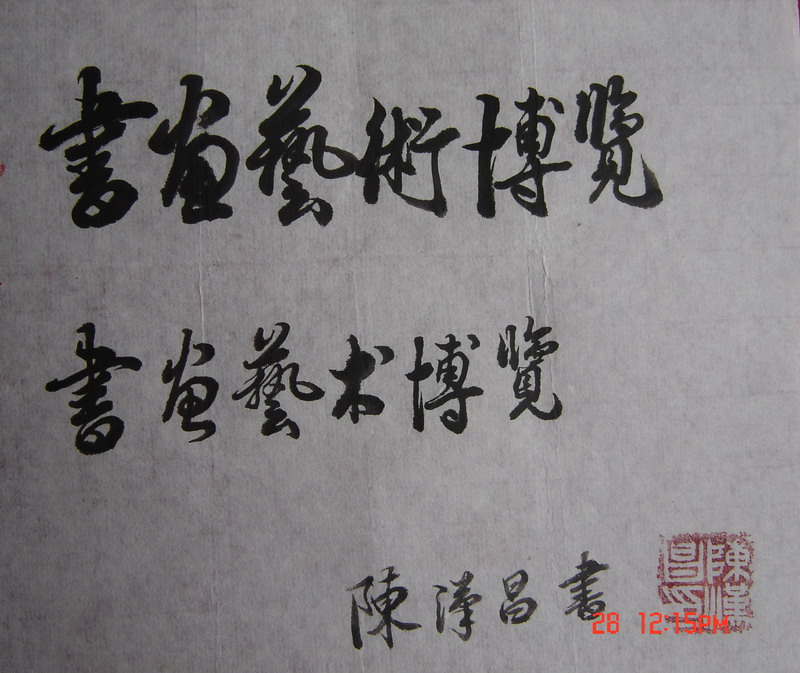 書画藝術博覽
書画藝术博覽
陳漢昌書
陳漢昌印
28 12:15PM